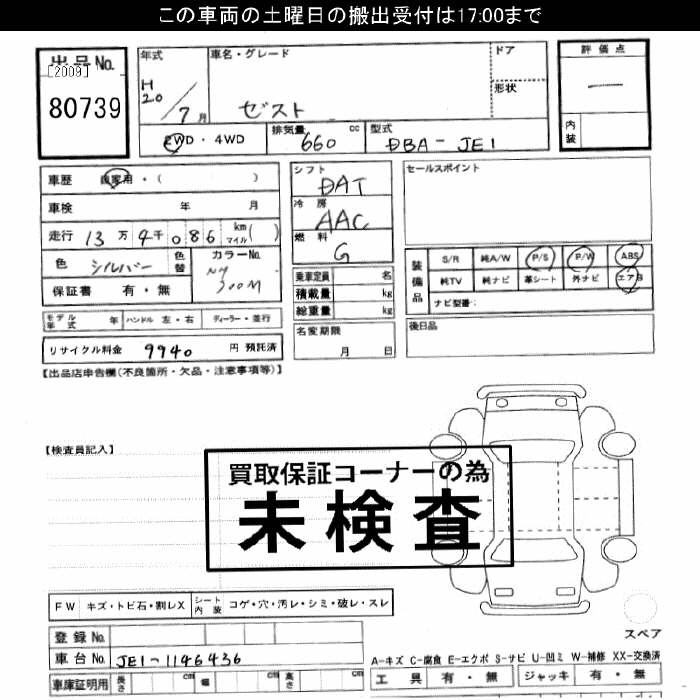 この車両の土曜日の搬出受付は17:00まで
出品No.
[2009]
80739
年式
H20/7月
車名・グレード
ゼスト
ドア
形状
評価点
内装
2WD・4WD
排気量 660 cc
型式 DBA-JE1
車歴 自家用・( )
車検 年 月
走行 13万4千086 km(マイル)
色 シルバー 色替
カラーNo.
NH700M
保証書 有・無
シフト
DAT
冷房
AAC
燃料
G
乗車定員 名
積載量 kg
総重量 kg
名変期限
月 日
セールスポイント
装備品
S/R 純A/W P/S P/W ABS
純TV 純ナビ 革シート 外ナビ エアB
ナビ型番:
後日品
モデル年式 年 ハンドル 左・右 ディーラー・並行
リサイクル料金 9940 円 預託済
【出品店申告欄(不良箇所・欠品・注意事項等)】
【検査員記入】
買取保証コーナーの為
未検査
FW キズ・トビ石・割レX シート内装 コゲ・穴・汚レ・シミ・破レ・スレ
登録No.
車台No. JE1-1146436
車庫証明用 長さ cm 幅 cm 高さ cm
スペア
A-キズ C-腐食 E-エクボ S-サビ U-凹ミ W-補修 XX-交換済
工具 有・無 ジャッキ 有・無